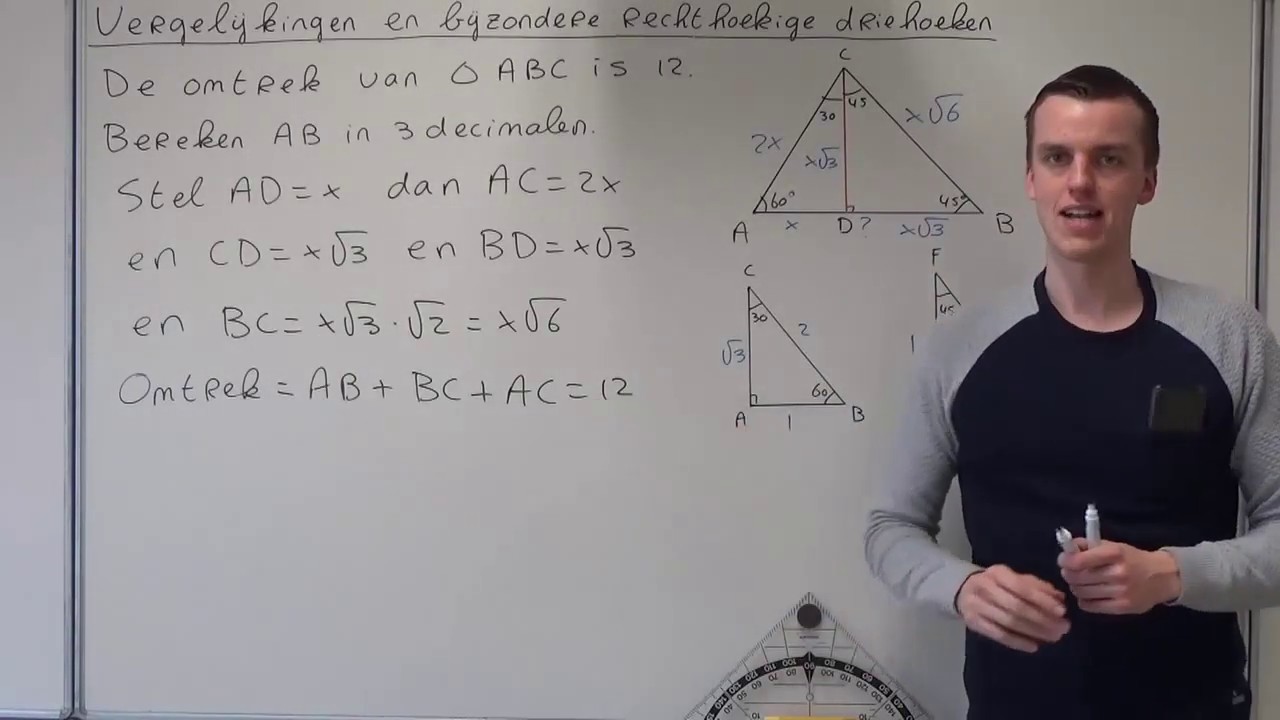 Vergelijkingen en bijzondere rechthoekige driehoeken
De omtrek van △ ABC is 12.
Bereken AB in 3 decimalen.
Stel AD = x dan AC = 2x
en CD = x√3 en BD = x√3
en BC = x√3 · √2 = x√6
Omtrek = AB + BC + AC = 12
C
30 45
2x x√3 x√6
60° 45°
A x D ? x√3 B
C
30
√3 2
60
A 1 B
F
45
1